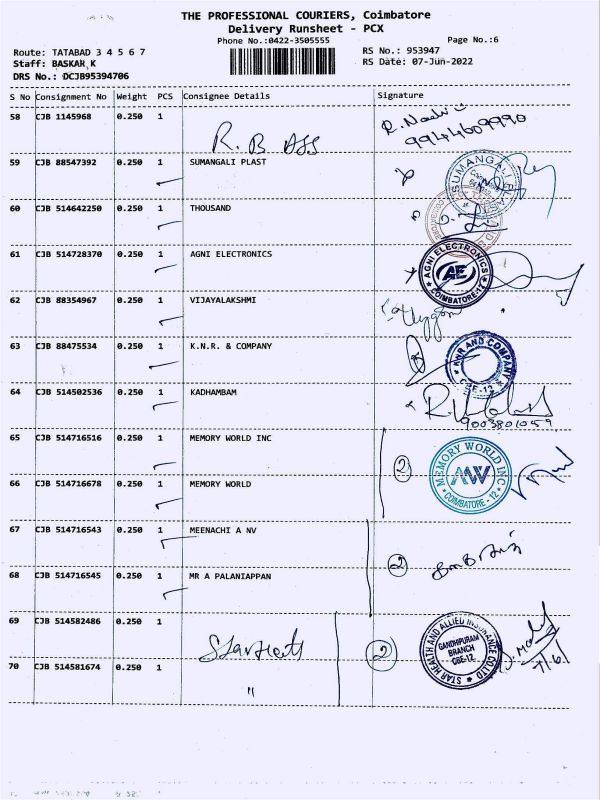 THE PROFESSIONAL COURIERS, Coimbatore
Delivery Runsheet - PCX
Phone No.:0422-3505555
Page No.:6
Route: TATABAD 3 4 5 6 7
RS No.: 953947
Staff: BASKAR K
RS Date: 07-Jun-2022
DRS No.: DCJB95394706
S No Consignment No Weight PCS Consignee Details Signature
58 CJB 1145968 0.250 1
R. B ASS
9944609990
59 CJB 88547392 0.250 1 SUMANGALI PLAST
SUMANGALI
60 CJB 514642250 0.250 1 THOUSAND
61 CJB 514728370 0.250 1 AGNI ELECTRONICS
AGNI ELECTRONICS
AE
COIMBATORE-12
62 CJB 88354967 0.250 1 VIJAYALAKSHMI
63 CJB 88475534 0.250 1 K.N.R. & COMPANY
KNR AND COMPANY
CBE-12
64 CJB 514502536 0.250 1 KADHAMBAM
9003801059
65 CJB 514716516 0.250 1 MEMORY WORLD INC
2
MEMORY WORLD INC
MW
COIMBATORE - 12
66 CJB 514716678 0.250 1 MEMORY WORLD
67 CJB 514716543 0.250 1 MEENACHI A NV
2
68 CJB 514716545 0.250 1 MR A PALANIAPPAN
69 CJB 514582486 0.250 1
Star Health
2
STAR HEALTH AND ALLIED INSURANCE CO LTD
GANDHIPURAM
BRANCH
CBE-12
70 CJB 514581674 0.250 1
"